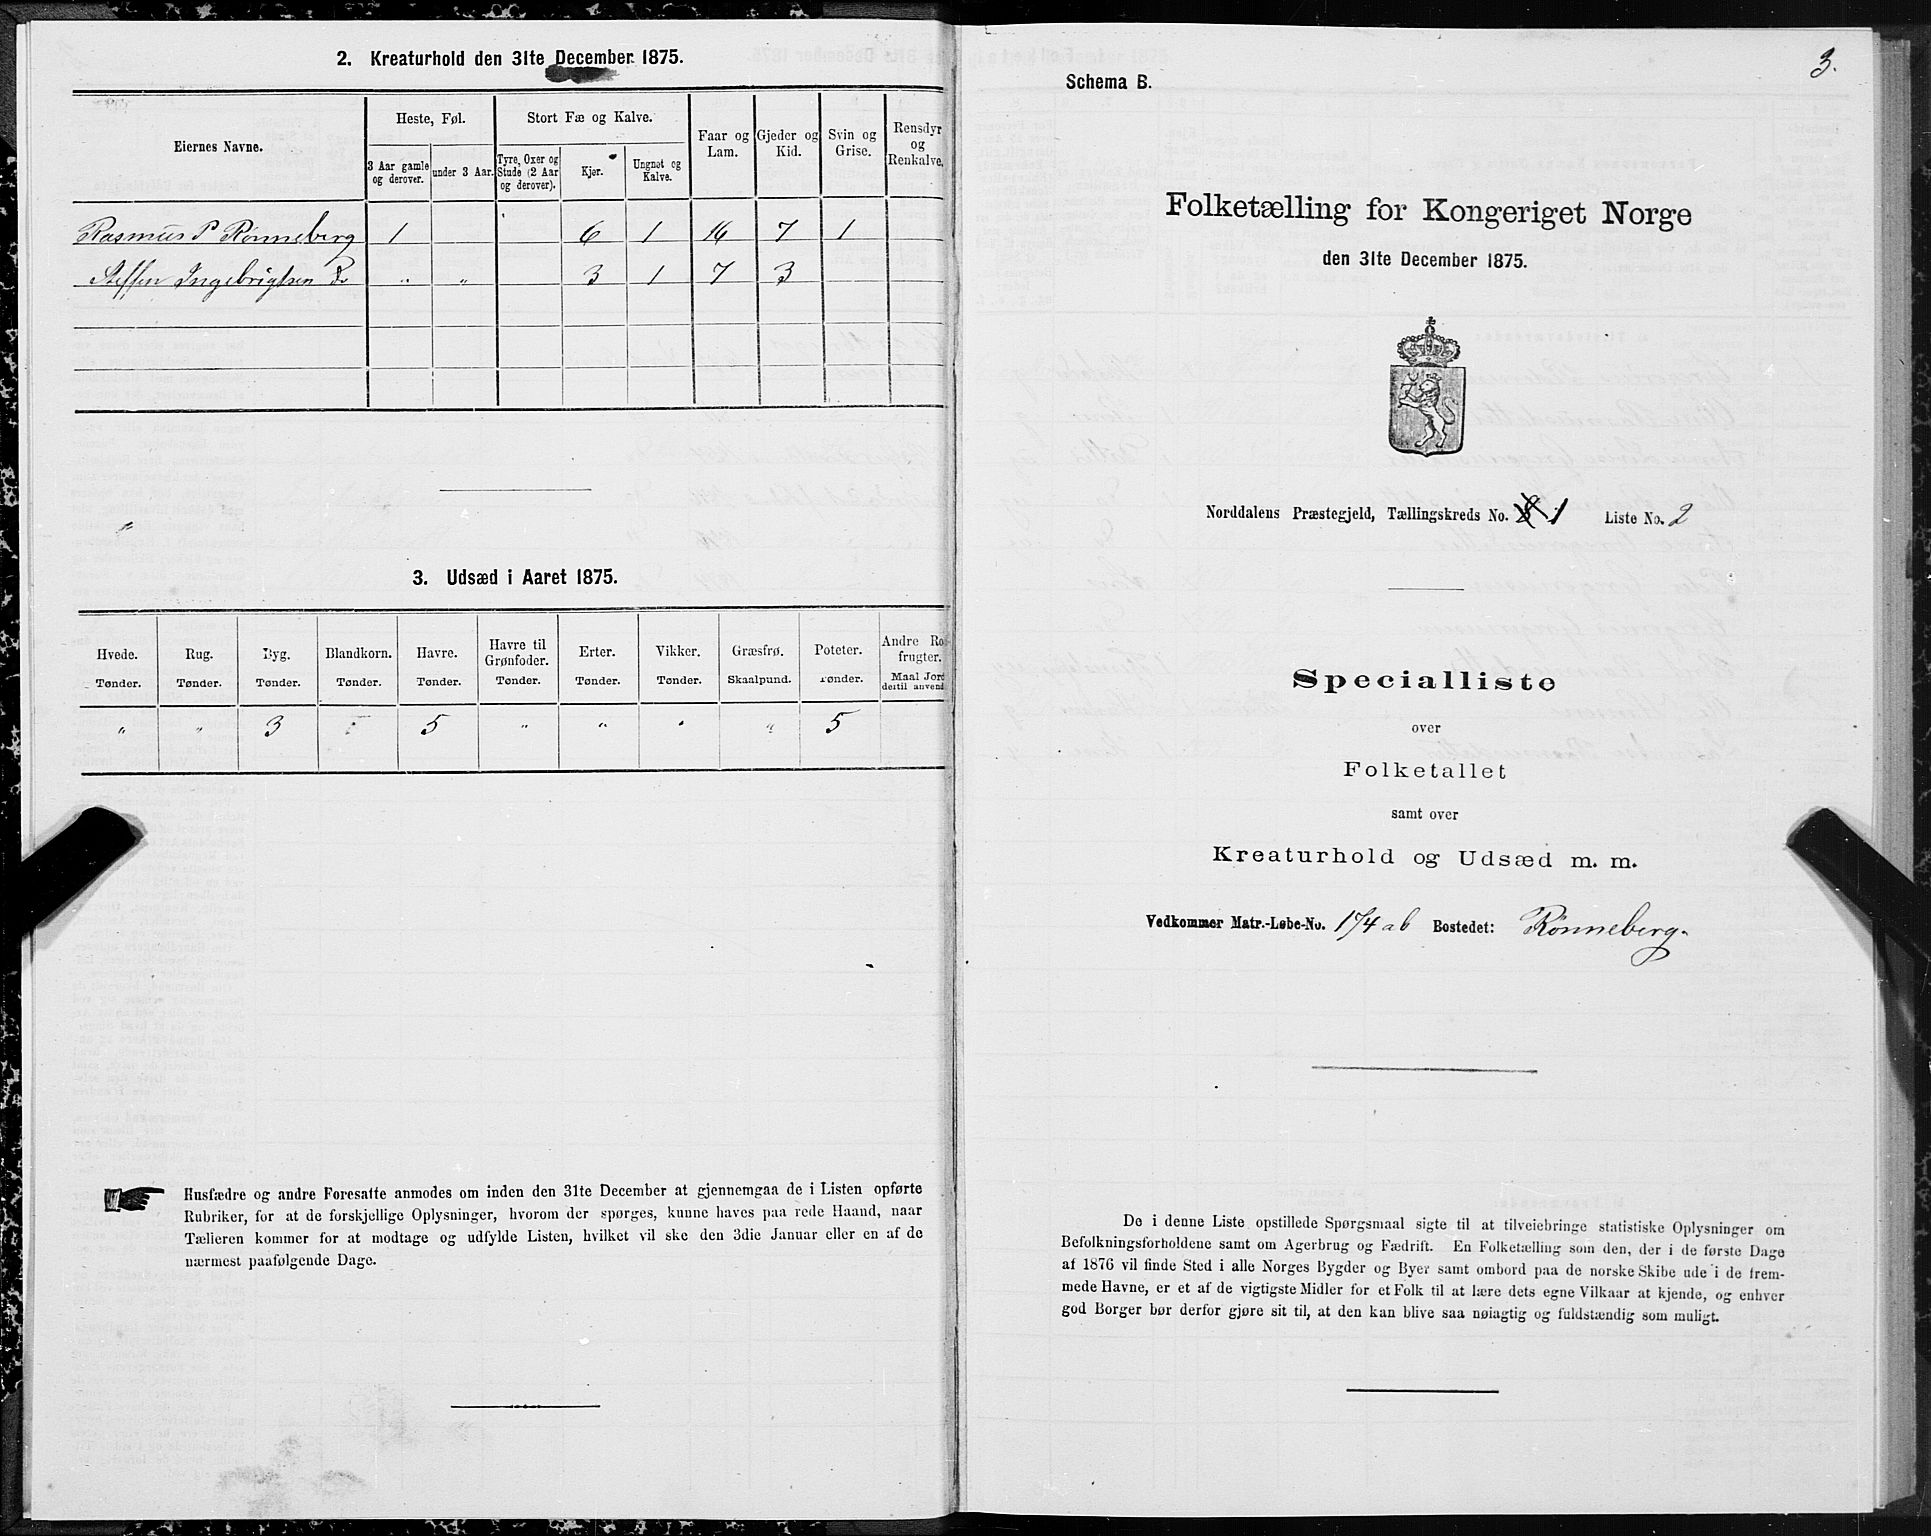 2. Kreaturhold den 31te December 1875.
Eiernes Navne.
Heste, Føl.
Stort Fæ og Kalve.
Faar og Lam.
Gjeder og Kid.
Svin og Grise.
Rensdyr og Renkalve.
3 Aar gamle og derover.
under 3 Aar.
Tyre, Oxer og Stude (2 Aar og derover).
Kjør.
Ungnøt og Kalve.
Rasmus P Rønneberg 1 6 1 16 7 1
Steffen Ingebrigtsen Do " " 3 1 7 3
"
3. Udsæd i Aaret 1875.
Hvede. Rug. Byg. Blandkorn. Havre. Havre til Grønfoder. Erter. Vikker. Græsfrø. Poteter. Andre Rodfrugter.
Tønder. Tønder. Tønder. Tønder. Tønder. Tønder. Tønder. Tønder. Skaalpund. Tønder. Maal Jord dertil anvendt
" " 3 " 5 " " " " 5
Husfædre og andre Foresatte anmodes om inden den 31te December at gjennemgaa de i Listen opførte
Rubriker, for at de forskjellige Oplysninger, hvorom der spørges, kunne haves paa rede Haand, naar
Tælleren kommer for at modtage og udfylde Listen, hvilket vil ske den 3die Januar eller en af de
nærmest paafølgende Dage.
3.
Schema B.
Folketælling for Kongeriget Norge
den 31te December 1875.
Norddalens Præstegjeld, Tællingskreds No. 1 Liste No. 2
Specialliste
over
Folketallet
samt over
Kreaturhold og Udsæd m. m.
Vedkommer Matr.-Løbe-No. 174ab Bostedet: Rønneberg.
De i denne Liste opstillede Spørgsmaal sigte til at tilveiebringe statistiske Oplysninger om
Befolkningsforholdene samt om Agerbrug og Fædrift. En Folketælling som den, der i de første Dage
af 1876 vil finde Sted i alle Norges Bygder og Byer samt ombord paa de norske Skibe ude i de frem-
mede Havne, er et af de vigtigste Midler for et Folk til at lære dets egne Vilkaar at kjende, og enhver
god Borger bør derfor gjøre sit til, at den kan blive saa nøiagtig og fuldstændig som muligt.